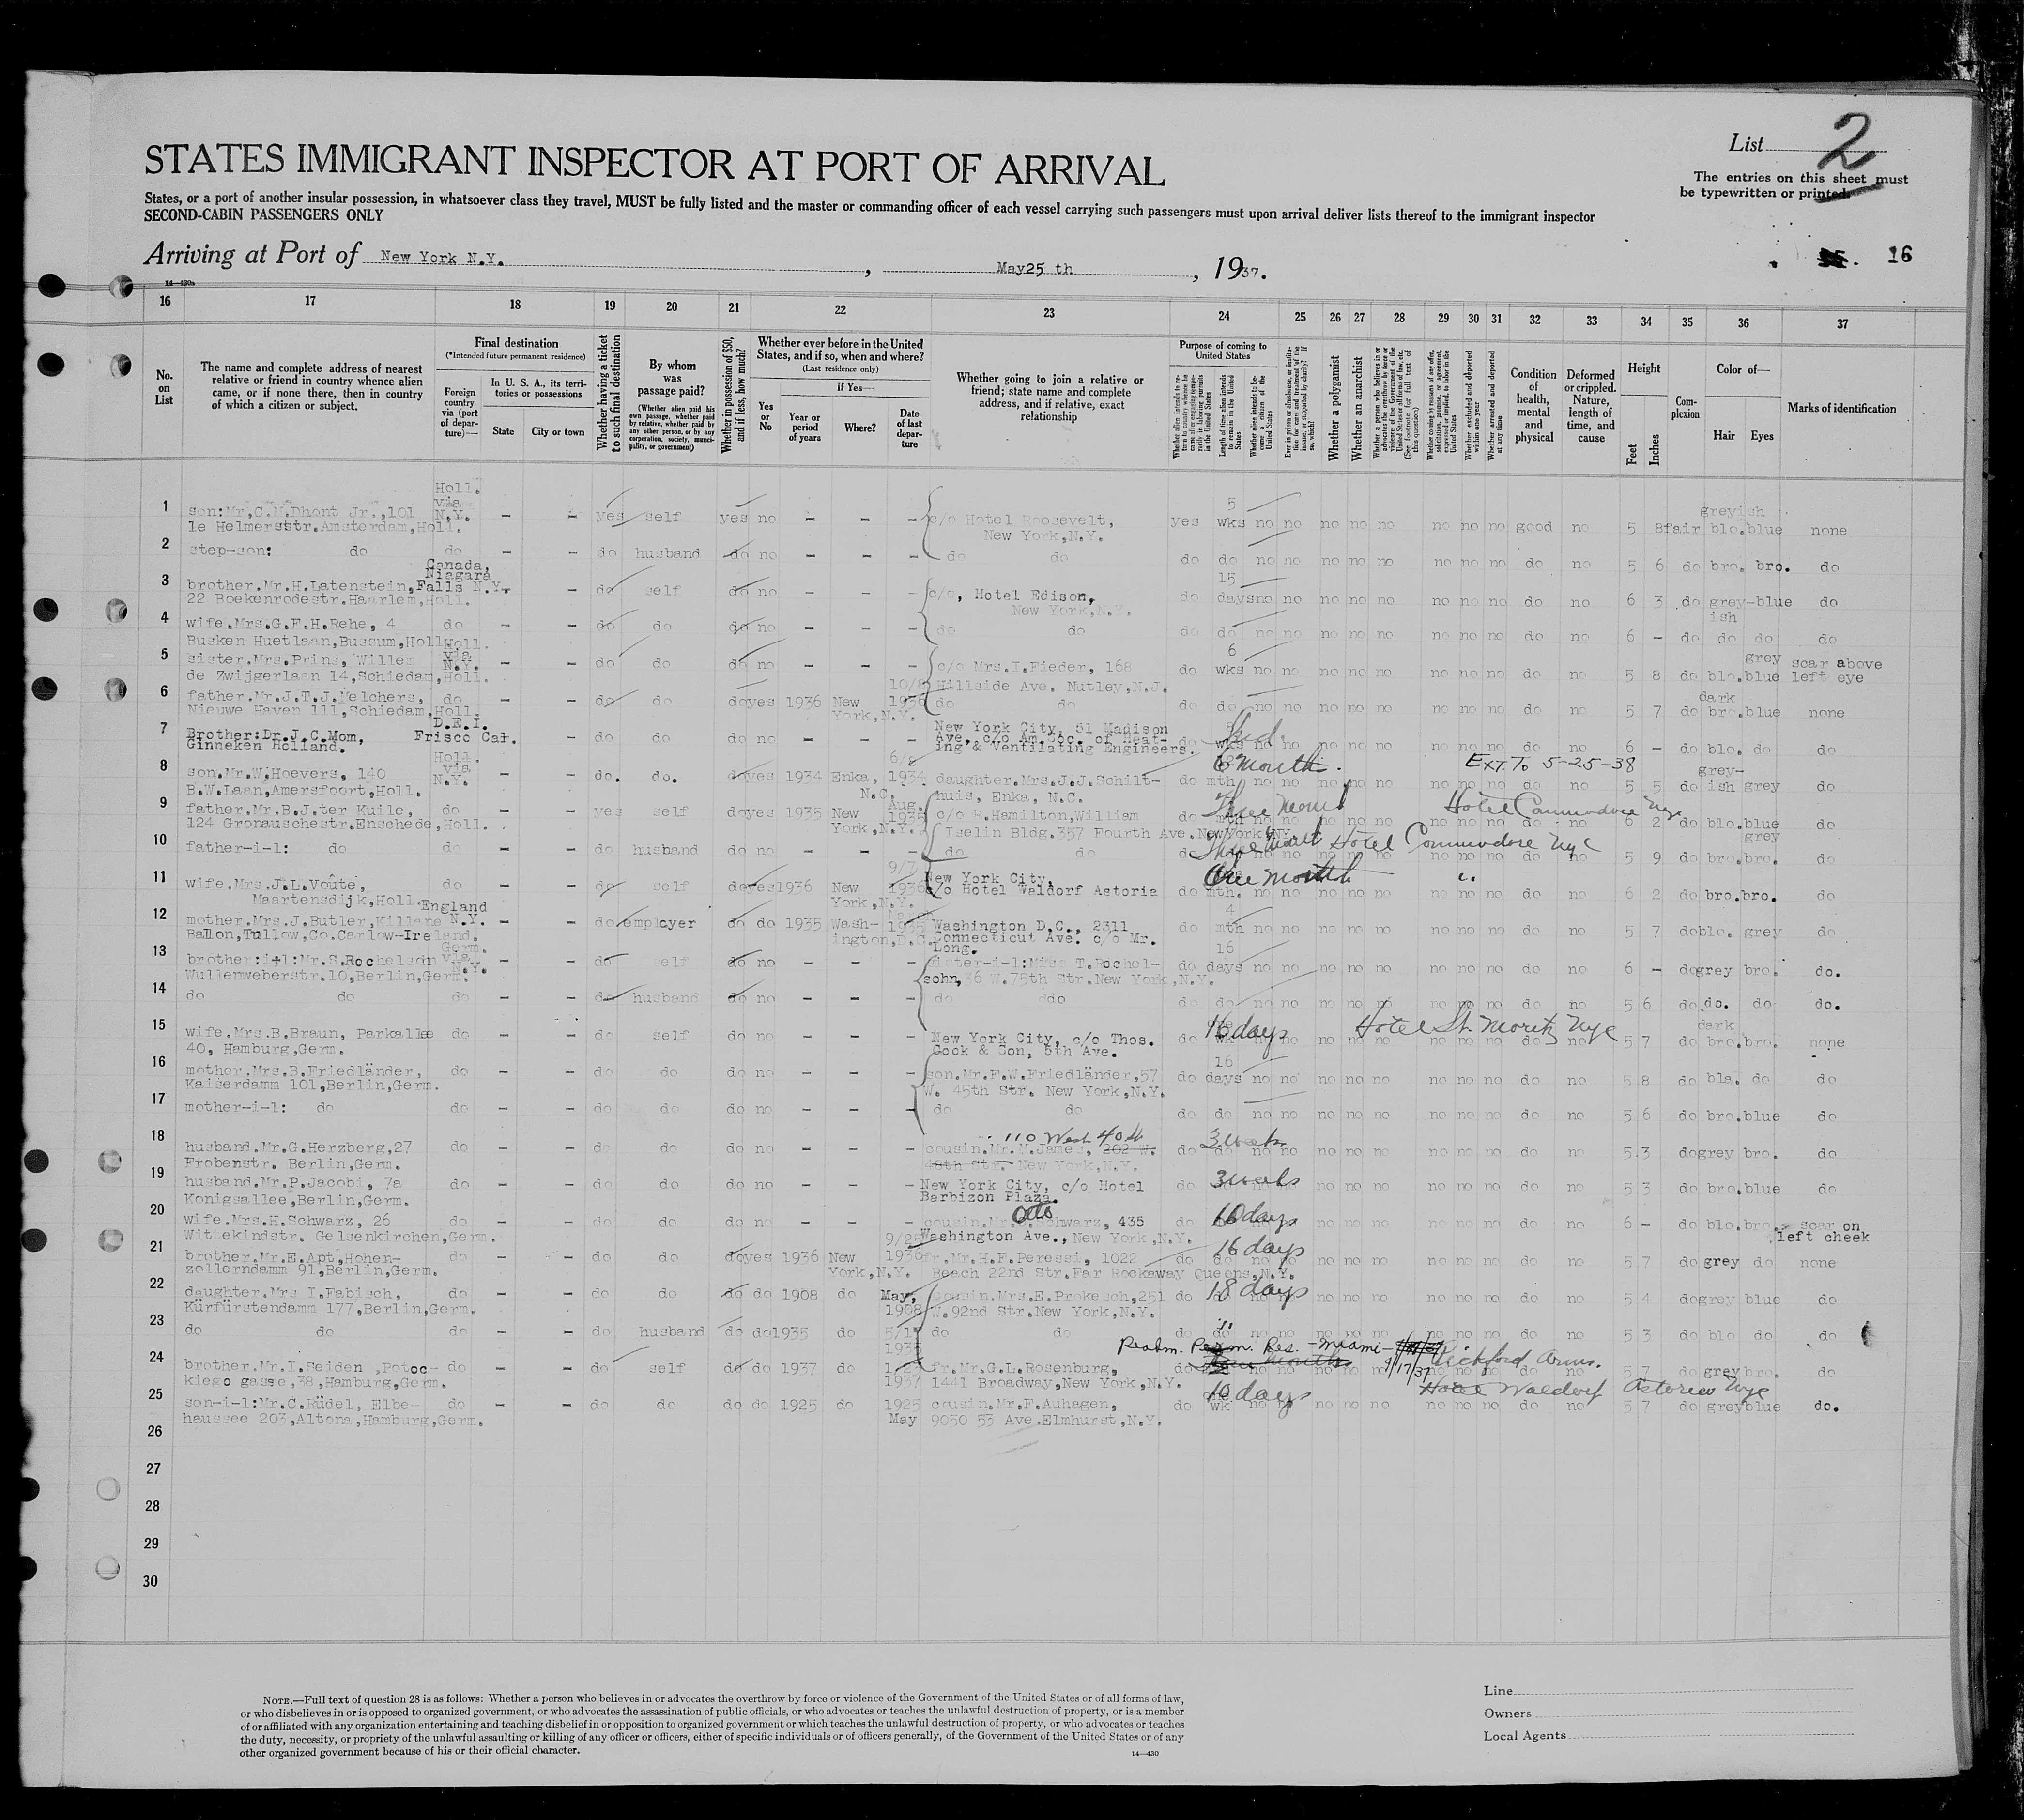 List 2
STATES IMMIGRANT INSPECTOR AT PORT OF ARRIVAL
The entries on this sheet must
be typewritten or printed.
States, or a port of another insular possession, in whatsoever class they travel, MUST be fully listed and the master or commanding officer of each vessel carrying such passengers must upon arrival deliver lists thereof to the immigrant inspector
SECOND-CABIN PASSENGERS ONLY
Arriving at Port of New York N.Y. , May25 th , 1937.
16
14—430a
16 17 18 19 20 21 22 23 24 25 26 27 28 29 30 31 32 33 34 35 36 37
No. on List
The name and complete address of nearest relative or friend in country whence alien came, or if none there, then in country of which a citizen or subject.
Final destination
(*Intended future permanent residence)
Foreign country via (port of departure)—
In U. S. A., its territories or possessions
State
City or town
Whether having a ticket to such final destination
By whom was passage paid?
(Whether alien paid his own passage, whether paid by relative, whether paid by any other person, or by any corporation, society, municipality, or government)
Whether in possession of $50, and if less, how much?
Whether ever before in the United States, and if so, when and where?
(Last residence only)
if Yes—
Yes or No
Year or period of years
Where?
Date of last departure
Whether going to join a relative or friend; state name and complete address, and if relative, exact relationship
Purpose of coming to United States
Length of time alien intends to remain in the United States
Whether alien intends to become a citizen of the United States
Whether a polygamist
Whether an anarchist
Whether excluded and deported within one year
Whether arrested and deported at any time
Condition of health, mental and physical
Deformed or crippled. Nature, length of time, and cause
Height
Feet
Inches
Complexion
Color of—
Hair
Eyes
Marks of identification
1 son:Mr.C.M.Dhont Jr.,101 Holl. via N.Y. - - yes self yes no - - - c/o Hotel Roosevelt, yes 5 wks no no no no no no no no good no 5 8 fair greyish blo. blue none
le Helmersstr.Amsterdam,Holl. New York,N.Y.
2 step-son: do do - - do husband do no - - - do do do do no no no no no no no no do no 5 6 do bro. bro. do
3 brother.Mr.H.Latenstein, Canada, Niagara Falls N.Y. - do self do no - - - c/o, Hotel Edison, do 15 days no no no no no no no no do no 6 3 do greyish blue do
22 Boekenrodestr.Haarlem,Holl. New York,N.Y.
4 wife.Mrs.G.F.H.Rehe, 4 do - - do do do no - - - do do do do no no no no no no no no do no 6 - do do do do
Busken Huetlaan,Bussum,Holl.
5 sister.Mrs.Prins, Willem Holl. via N.Y. - - do do do no - - - c/o Mrs.I.Fieder, 168 do 6 wks no no no no no no no no do no 5 8 do blo. grey blue scar above left eye
de Zwijgerlaan 14,Schiedam,Holl. Hillside Ave. Nutley,N.J.
6 father.Mr.J.T.J.Melchers, do - - do do do yes 1936 New York,N.Y. 10/8 1936 do do do do no no no no no no no no do no 5 7 do dark bro. blue none
Nieuwe Haven 111,Schiedam,Holl.
7 Brother:Dr.J.C.Mom, D.E.I. Frisco Cal. - do do do no - - - New York City, 51 Madison do wks no no no no no no no no do no 6 - do blo. do do
Ginneken Holland. Ave, c/o Am.Soc. of Heat-
ing & Ventilating Engineers.
8 son.Mr.W.Hoevers, 140 Holl. via N.Y. - - do. do. do yes 1934 Enka, N.C. 6/8 1934 daughter.Mrs.J.J.Schilt- do 6 month. mth no no no no no no no no do no 5 5 do grey-ish grey do
Ext. To 5-25-38
B.W.Laan,Amersfoort,Holl. huis, Enka, N.C.
9 father.Mr.B.J.ter Kuile, do - - yes self do yes 1935 New York,N.Y. Aug. 1935 c/o R.Hamilton,William do Three Mont mth no no no no no no no no do no 6 2 do blo. blue do
Hotel Commodore Nyc
124 Gronauschestr.Enschede,Holl. Iselin Bldg.357 Fourth Ave.New York NY.
10 father-i-l: do do - - do husband do no - - - do do do Three Month Hotel Commodore Nyc no no no do no 5 9 do bro. grey bro. do
11 wife.Mrs.J.L.Voûte, do - - do self do yes 1936 New York,N.Y. 9/7 1936 New York City, do One month mth. no no no no no no no no do no 6 2 do bro. bro. do
Maartensdijk,Holl. c/o Hotel Waldorf Astoria
12 mother.Mrs.J.Butler,Killane England N.Y. - - do employer do do 1935 Wash-ington,D.C. 1935 Washington D.C., 2311 do 4 mth no no no no no no no no do no 5 7 do blo. grey do
Ballon,Tullow,Co.Carlow-Ireland. Connecticut Ave. c/o Mr.
Long.
13 brother:i+l:Mr.S.Rochelsohn Germ. via N.Y. - - do self do no - - - sister-i-l:Miss T.Rochel- do 16 days no no no no no no no no do no 6 - do grey bro. do.
Wullenweberstr.10,Berlin,Germ. sohn,36 W.75th Str.New York,N.Y.
14 do do do - - do husband do no - - - do ddo do do no no no no no no no no do no 5 6 do do. do do.
15 wife.Mrs.B.Braun, Parkallee do - - do self do no - - - New York City, c/o Thos. do 16 days wk no no no no no no no no do no 5 7 do dark bro. bro. none
Hotel St. Moritz Nyc
40, Hamburg,Germ. Cook & Son, 5th Ave.
16 mother.Mrs.B.Friedländer, do - - do do do no - - - son.Mr.F.W.Friedländer,57 do 16 days no no no no no no no no do no 5 8 do bla. do do
Kaiserdamm 101,Berlin,Germ. W. 45th Str. New York,N.Y.
17 mother-i-l: do do - - do do do no - - - do do do do no no no no no no no no do no 5 6 do bro. blue do
110 West 40 St
18 husband.Mr.G.Herzberg,27 do - - do do do no - - - cousin.Mr.M.James, 202 W. do 3 weeks do no no no no no no no no do no 5.3 do grey bro. do
Frobenstr. Berlin,Germ. 48th Str. New York,N.Y.
19 husband.Mr.P.Jacobi, 7a do - - do do do no - - - New York City, c/o Hotel do 3 weeks no no no no no no no no do no 5 3 do bro. blue do
Konigsallee,Berlin,Germ. Barbizon Plaza.
20 wife.Mrs.H.Schwarz, 26 do - - do do do no - - - cousin.Mr. Otto Schwarz, 435 do 16 days no no no no no no no no do no 6 - do blo. bro. scar on left cheek
Wittekindstr. Gelsenkirchen,Germ. Washington Ave., New York,N.Y.
21 brother.Mr.E.Apt,Hohen- do - - do do do yes 1936 New York,N.Y. 1936 fr.Mr.H.F.Peressi, 1022 do 16 days do no no no no no no no no do no 5 7 do grey do none
zollerndamm 91,Berlin,Germ. Beach 22nd Str.Far Rockaway Queens,N.Y.
22 daughter.Mrs I.Fabisch, do - - do do do do 1908 do May, 1908 cousin.Mrs.E.Prokesch,251 do 18 days no no no no no no no no do no 5 4 do grey blue do
Kürfürstendamm 177,Berlin,Germ. W.92nd Str.New York,N.Y.
23 do do do - - do husband do do 1935 do do do do do no no no no no no no no do no 5 3 do blo do do
Readm. Perm. Res. - Miami - 9/17/37
24 brother.Mr.I.Seiden ,Potoc- do - - do self do do 1937 do 1937 fr.Mr.G.L.Rosenburg, do no no no no no no no no do no 5 7 do grey bro. do
Pickford Arms.
kiego gasse,38,Hamburg,Germ. 1441 Broadway,New York,N.Y.
25 son-i-l:Mr.C.Rüdel, Elbe- do - - do do do do 1925 do 1925 May cousin.Mr.F.Auhagen, do 10 days wk no no no no no no no no do no 5 7 do grey blue do.
Hotel Waldorf Astoria Nyc
haussee 203,Altona,Hamburg,Germ. 9050 53 Ave.Elmhurst,N.Y.
26
27
28
29
30
NOTE.—Full text of question 28 is as follows: Whether a person who believes in or advocates the overthrow by force or violence of the Government of the United States or of all forms of law,
or who disbelieves in or is opposed to organized government, or who advocates the assassination of public officials, or who advocates or teaches the unlawful destruction of property, or is a member
of or affiliated with any organization entertaining and teaching disbelief in or opposition to organized government or which teaches the unlawful destruction of property, or who advocates or teaches
the duty, necessity, or propriety of the unlawful assaulting or killing of any officer or officers, either of specific individuals or of officers generally, of the Government of the United States or of any
other organized government because of his or their official character.
14—430
Line
Owners
Local Agents